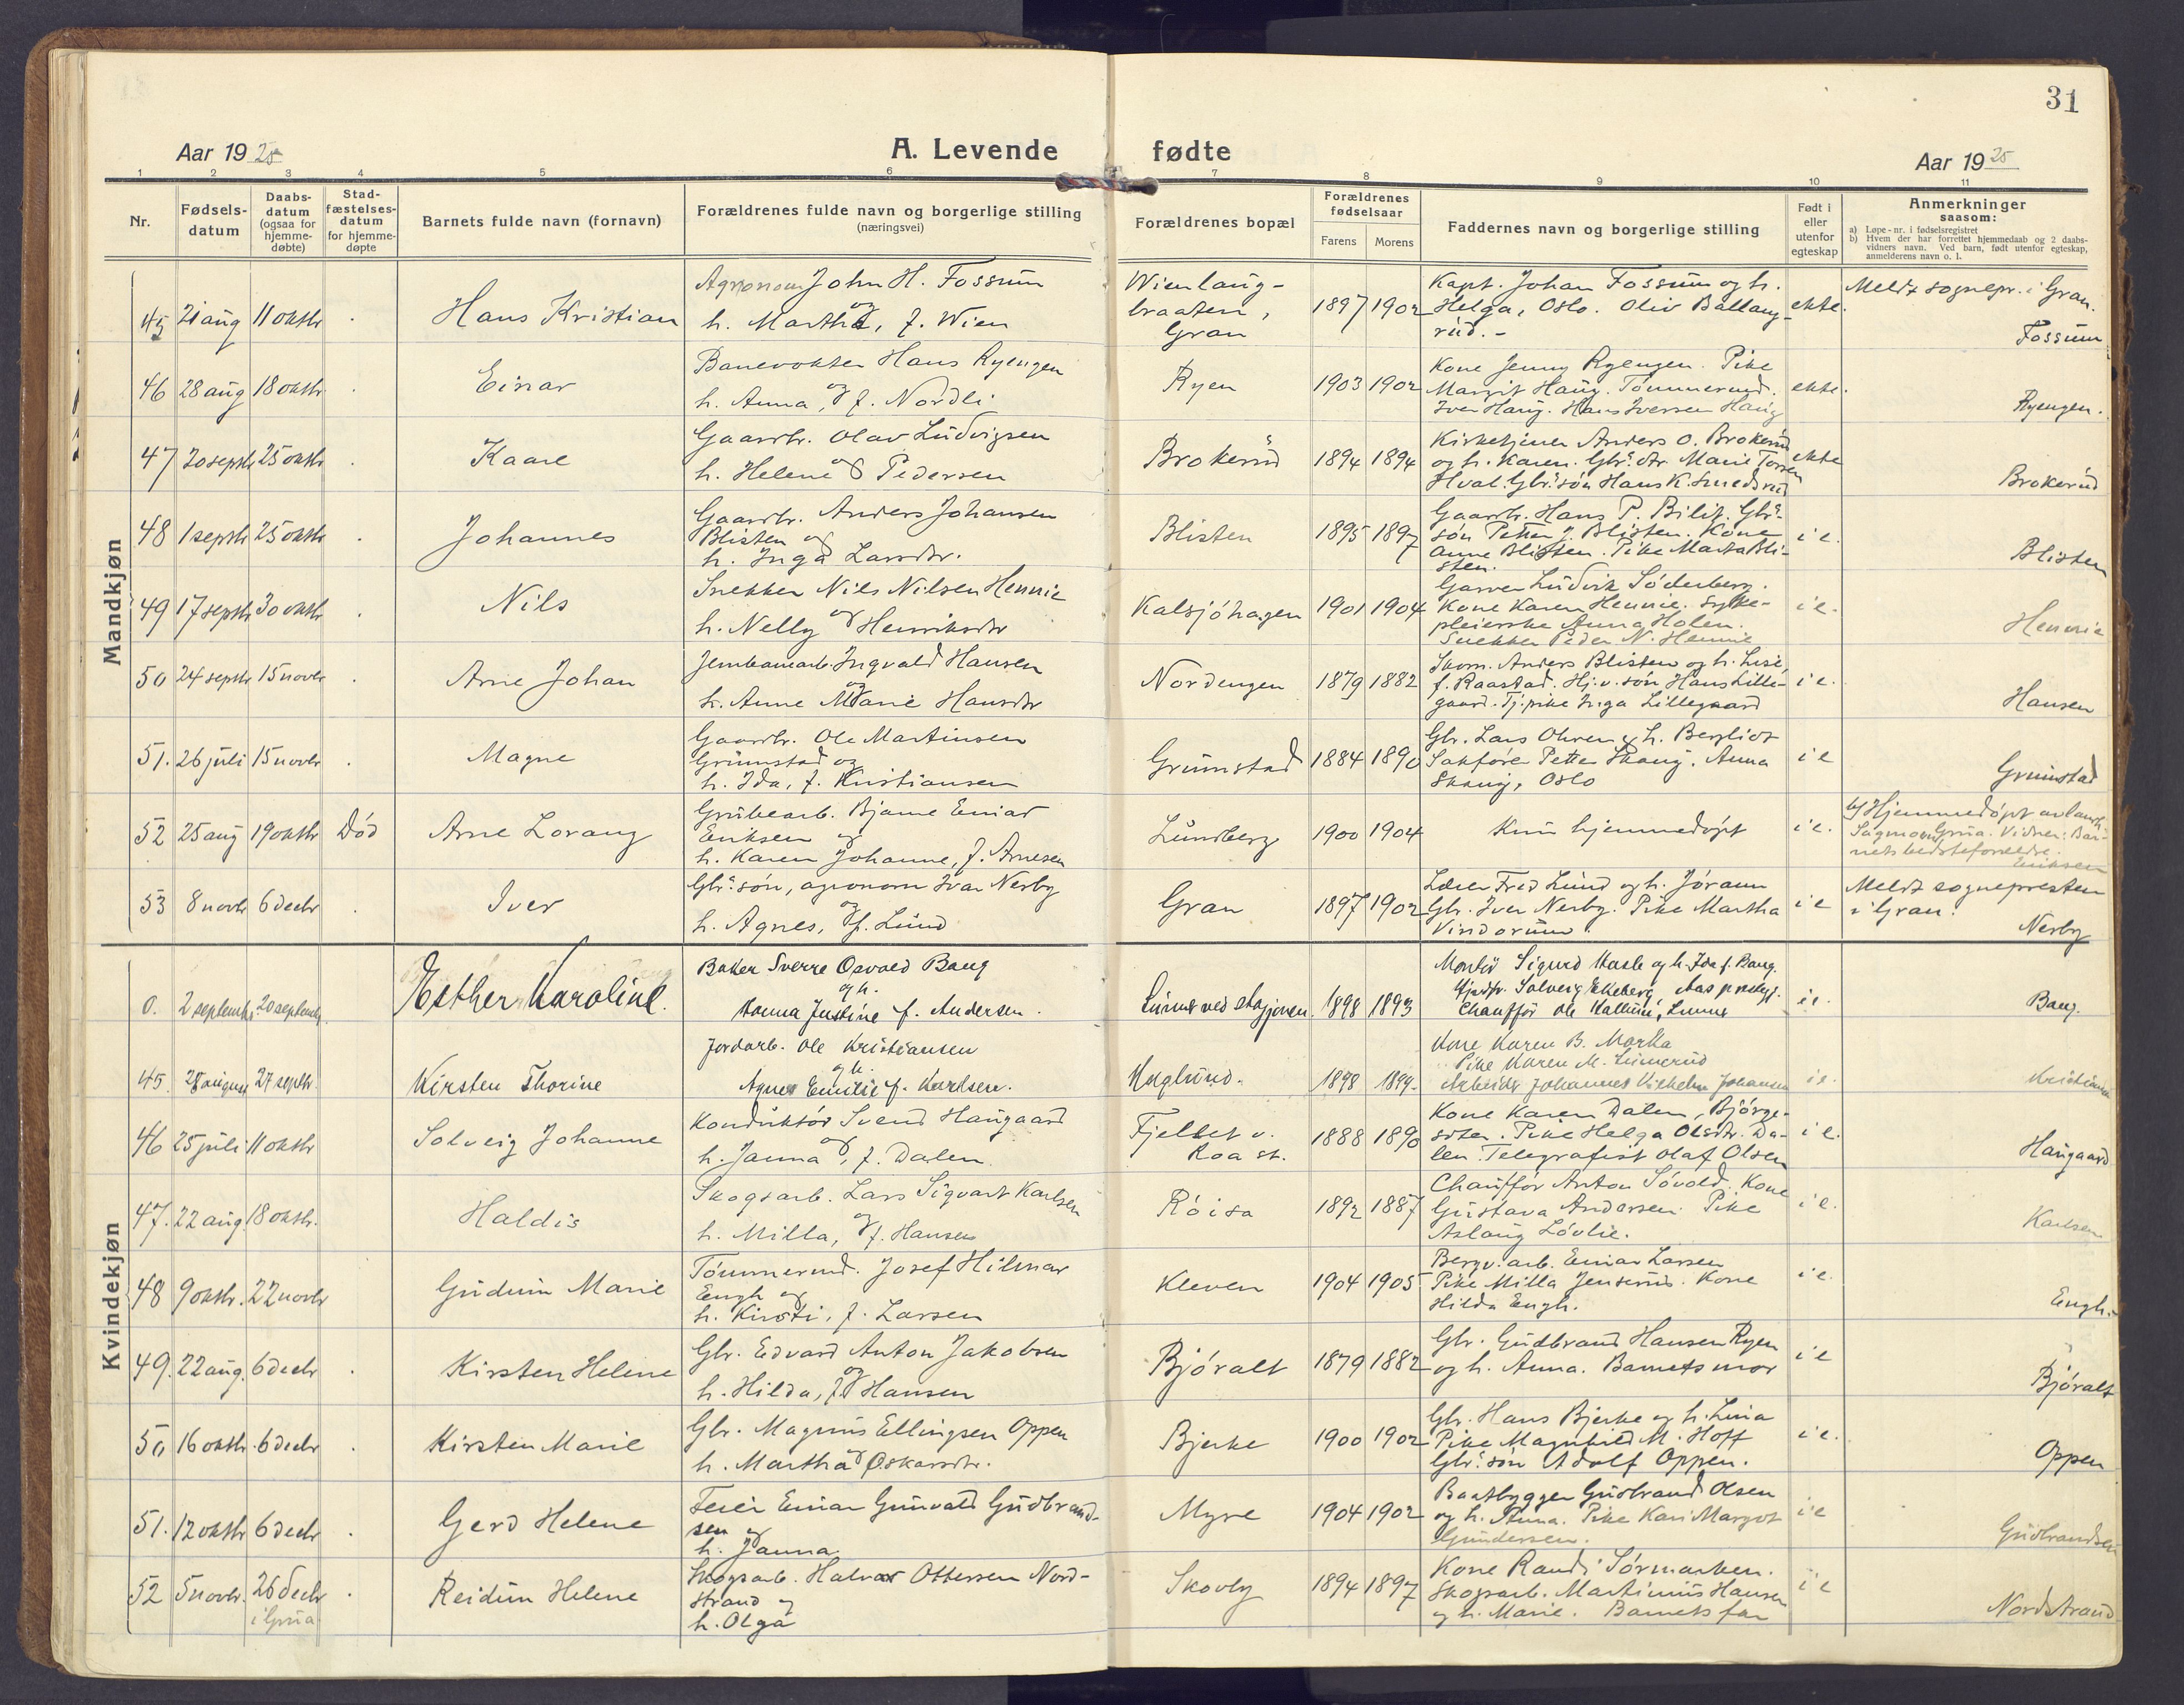 31
Aar 1925
A. Levende
fødte
Aar 1925
1 2 3 4 5 6 7 8 9 10 11
Nr.
Fødsels-
datum
Daabs-
datum
(ogsaa for
hjemme-
døbte)
Stad-
fæstelses-
datum
for hjemme-
døpte
Barnets fulde navn (fornavn)
Forældrenes fulde navn og borgerlige stilling
(næringsvei)
Forældrenes bopæl
Forældrenes
fødselsaar
Farens
Morens
Faddernes navn og borgerlige stilling
Født i
eller
utenfor
egteskap
Anmerkninger
saasom:
a) Løpe-nr. i fødselsregistret
b) Hvem der har forrettet hjemmedaab og 2 daabs-
vidners navn. Ved barn, født utenfor egteskap,
anmelderens navn o. l.
Mandkjøn
45 21 aug 11 oktbr . Hans Kristian
Agronom John H. Fossum
og
h. Martha, f. Wien
Wienlaug-
braaten,
Gran
1897 1902
Kapt. Johan Fossum og h.
Helga, Oslo. Oliv Ballang-
rud.-
ekte.
Meldt sognepr. i Gran.
Fossum
46 28 aug 18 oktbr . Einar
Banevokter Hans Ryengen
og
h. Anna, f. Nordli
Ryen
1903 1902
Kone Jenny Ryengen. Pike
Margit Haug. Tømmermd.
Iver Haug. Hans Iversen Haug
ekte.
Ryengen.
47 20 septbr 25 oktbr . Kaare
Gaardbr. Olav Ludvigsen
og
h. Helene Pedersen
Brokerud
1894 1894
Kirketjener Anders O. Brokerud
og h. Karen. Gbr. dtr. Marie Torsen
Hval. Gbr. søn Hans K. Smedsrud
ekte
Brokerud
48 1 septbr 25 oktbr . Johannes
Gaardbr. Anders Johansen
Blisten og
h. Inga Larsdtr.
Blisten
1895 1897
Gaardbr. Hans P. Bilit. Gbr.
søn Petter J. Blisten. Kone
Anne Blisten. Pike Marta Bli-
sten.
i e.
Blisten
49 17 septbr 30 oktbr . Nils
Snekker Nils Nilsen Hennie
og
h. Nelly Henriksdtr
Kalsjøhagen
1901 1904
Garver Ludvik Søderberg.
Kone Karen Hennie. Syke-
pleierske Anna Holen.
Snekker Peder N. Hennie
i e.
Hennie
50 24 septbr 15 novbr . Arne Johan
Jernbanearb. Ingvald Hansen
og
h. Anne Marie Hansdtr
Nordengen
1879 1882
Skom. Anders Blisten og h. Lise,
f. Raastad. Hj.v. søn Hans Lille-
gaard. Tj. pike Inga Lillegaard
i e.
Hansen
51. 26 juli 15 novbr . Magne
Gaardbr. Ole Martinsen
Grumstad og
h. Ida, f. Kristiansen
Grumstad
1884 1890
Gbr. Lars Ohren og h. Bergliot
Sakfører Petter Skaug, Anna
Skaug, Oslo
i e
Grumstad
52 25 aug 19 oktbr Død Arne Lorang
Grubearb. Bjarne Einar
Eriksen og
h. Karen Johanne, f. Arnesen
Lundberg
1900 1904
Kun hjemmedøpt
i e.
b/ Hjemmedøpt av
Sagmoen, Grua. Vidner: Bar-
nets bedsteforeldre.
Eriksen
53 8 novbr 6 decbr . Iver
Gbr. søn, agronom Ivar Nerby
og
h. Agnes, f. Lund
Gran
1897 1902
Lærer Fred Lund og h. Jørann
Gbr. Iver Nerby. Pike Martha
Vindorum
i e
Meldt sognepresten
i Gran.
Nerby
Kvindekjøn
0. 2 septembr. 20 septembr. Esther Karoline.
Baker Sverre Osvald Baug
og h.
Hanna Justine f. Andersen.
Lunner ved stasjonen.
1898 1893
Montør Sigurd Hasle og h. Ida f. Baug.
Solveig Ekeberg, Aas
Chauffør Ole Kallum, Lunner
i e.
Baug.
45. 28 august 27 septbr. Kirsten Thorine
Jordarb. Ole Kristiansen
og h.
Agnes Emilie f. Karlsen.
Haglund.
1898 1899.
Kone Karen B. Morka
Pike Karen M. Limerud
Arbeider Johannes Vilhelm Johansen
i e.
Kristiansen
46 25 juli 11 oktbr Solveig Johanne
Konduktør Svend Haugaard
og
h. Janna, f. Dalen
Fjellet v.
Roa st.
1888 1890
Kone Karen Dalen, Bjørge-
seter. Pike Helga Olsdtr. Da-
len. Telegrafist Olaf Olsen
i e.
Haugaard
47. 22 aug. 18 oktbr. Haldis
Skogsarb. Lars Sigvart Karlsen
og
h. Milla, f. Hansen
Røisa
1892 1887
Chauffør Anton Søvold. Kone
Gustava Andersen. Pike
Aslaug Løvlie.
i e.
Karlsen
48 9 oktbr. 22 novbr Gudrun Marie
Tømmermd. Josef Hilmar
Engh og
h. Kirsti, f. Larsen
Kleven
1904 1905
Bergv.arb. Einar Larsen
Pike Milla Jenserud. Kone
Hilda Engh.
i e.
Engh.
49. 22 aug. 6 decbr . Kirsten Helene
Gbr. Edvard Anton Jakobsen
og
h. Hilda, f. Hansen
Bjøralt
1879 1882
Gbr. Gudbrand Hansen Ryen
og h. Anna. Barnets mor
i e
Bjøralt
50 16 oktbr. 6 decbr . Kirsten Marie
Gbr. Magnus Ellingsen Oppen
og
h. Martha Oskarsdtr.
Bjerke
1900 1902
Gbr. Hans Bjerke og h. Lina
Pike Magnhild M. Hoff
Gbr. søn Adolf Oppen.
i e.
Oppen
51. 12 oktbr 6 decbr . Gerd Helene
Feier Einar Gunvald Gudbrand-
sen og
h. Janna
Myre
1904 1902
Baatbygger Gudbrand Olsen
og h. Anna. Pike Kari Margot
Gundersen.
i e
Gudbrandsen
52 5 novbr. 26 decbr . Reidun Helene
i Grua.
Skogsarb. Halvor Ottersen Nord-
strand og
h. Olga
Skovly
1894 1897
Kone Randi Sørmarken.
Skogsarb. Martinius Hansen
og h. Marie. Barnets far
i e
Nordstrand